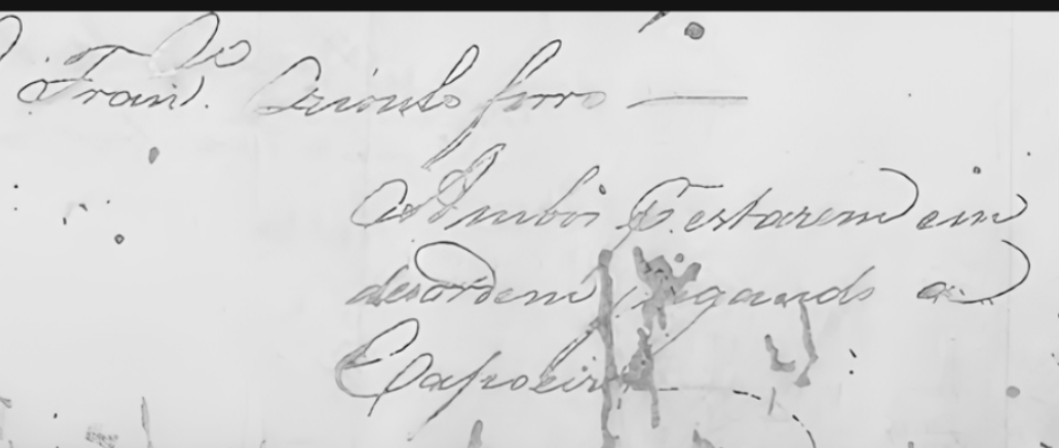 Fran.co Crioulo forro —
Ambos P. estarem em
desordem jogando a
Capoeira